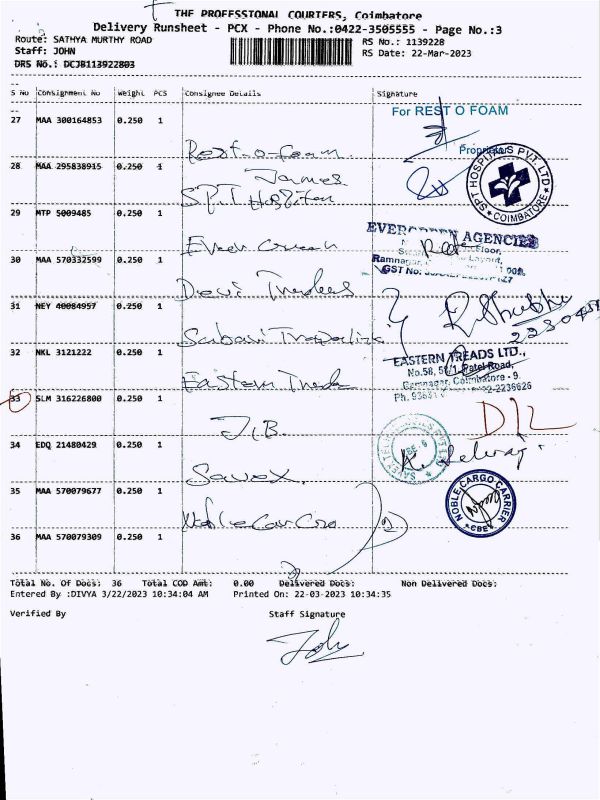 THE PROFESSIONAL COURIERS, Coimbatore
Delivery Runsheet - PCX - Phone No.:0422-3505555 - Page No.:3
Route: SATHYA MURTHY ROAD
RS No.: 1139228
Staff: JOHN
RS Date: 22-Mar-2023
DRS No.: DCJB113922803
S No Consignment No Weight PCS Consignee Details Signature
27 MAA 300164853 0.250 1
For REST O FOAM
Rest-o-foam
Proprietor
28 MAA 295838915 0.250 1
James
SPT Hospital
SPT HOSPITALS PVT. LTD
COIMBATORE
29 MTP 5009485 0.250 1
Ever Green
EVERGREEN AGENCIES
Floor,
Layout,
Ramnagar,
GST No:
30 MAA 570332599 0.250 1
Devi Traders
31 NEY 40084957 0.250 1
Sabari
32 NKL 3121222 0.250 1
Eastern Treads
EASTERN TREADS LTD.,
Patel Road,
Ramnagar, Coimbatore - 9.
33 SLM 316226800 0.250 1
J.B.
D/L
34 EDQ 21480429 0.250 1
Savex
K. Selvaj
35 MAA 570079677 0.250 1
Noble Car Cro
NOBLE CARGO CARRIER
CBE
36 MAA 570079309 0.250 1
Total No. Of Docs: 36 Total COD Amt: 0.00 Delivered Docs: Non Delivered Docs:
Entered By :DIVYA 3/22/2023 10:34:04 AM Printed On: 22-03-2023 10:34:35
Verified By Staff Signature
John